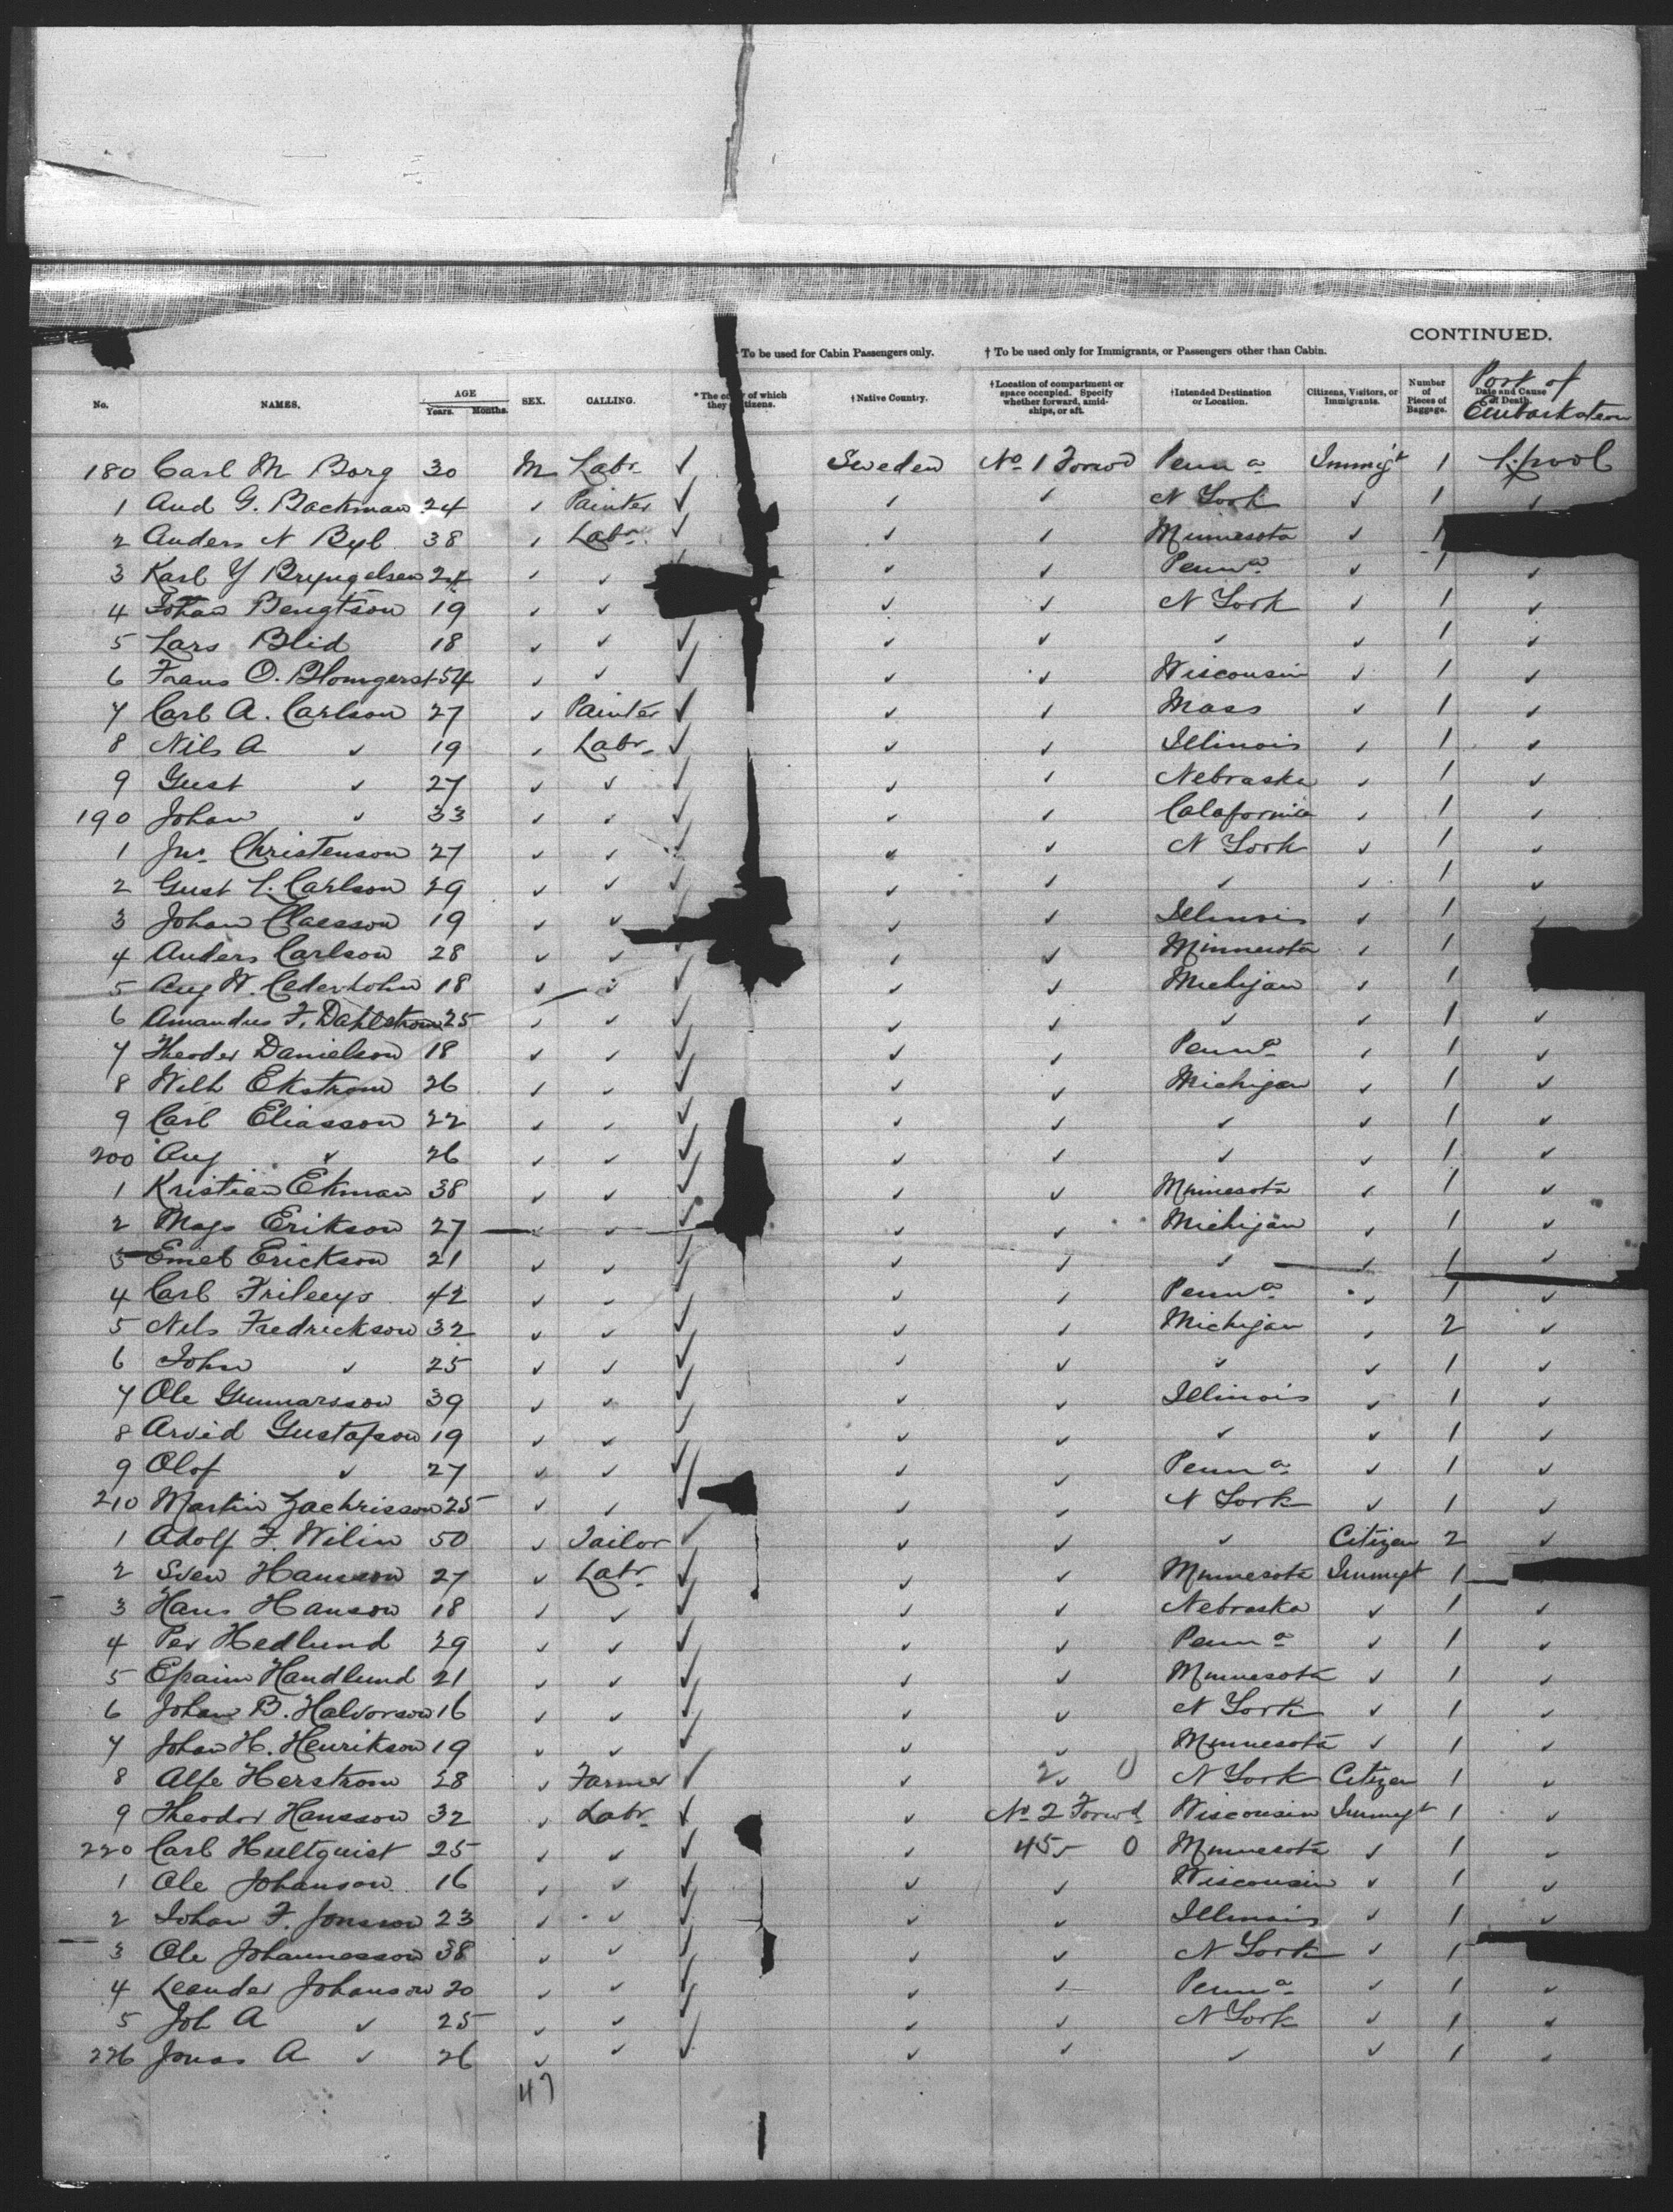 CONTINUED.
To be used for Cabin Passengers only. † To be used only for Immigrants, or Passengers other than Cabin.
No. NAMES. AGE Years. Months. SEX. CALLING. * The of which they †Native Country. †Location of compartment or space occupied. Specify whether forward, amid-ships, or aft. †Intended Destination or Location. Citizens, Visitors, or Immigrants. Number of Pieces of Baggage. Date and Cause of Death. Port of Embarkation
180 Carl M Borg 30 M Labr ✓ Sweden No 1 Forwd Penna Immigt 1 L.pool
1 And G. Backman 24 ✓ Painter ✓ ✓ ✓ N York ✓ 1 ✓
2 Anders N Byl 38 ✓ Labr ✓ ✓ ✓ Minnesota ✓ 1
3 Karl Y Bryngelsen 24 ✓ ✓ ✓ ✓ Penna ✓ 1 ✓
4 Johan Bengtson 19 ✓ ✓ ✓ ✓ N York ✓ 1 ✓
5 Lars Blid 18 ✓ ✓ ✓ ✓ ✓ ✓ ✓ 1 ✓
6 Frans O. 54 ✓ ✓ ✓ ✓ ✓ Wisconsin ✓ 1 ✓
7 Carl A. Carlson 27 ✓ Painter ✓ ✓ ✓ Mass ✓ 1 ✓
8 Nils A ✓ 19 ✓ Labr ✓ ✓ ✓ Illinois ✓ 1 ✓
9 Gust ✓ 27 ✓ ✓ ✓ ✓ ✓ Nebraska ✓ 1 ✓
190 Johan ✓ 33 ✓ ✓ ✓ ✓ ✓ Calafornia ✓ 1 ✓
1 Jno Christenson 27 ✓ ✓ ✓ ✓ ✓ N York ✓ 1 ✓
2 Gust L. Carlson 29 ✓ ✓ ✓ ✓ ✓ ✓ ✓ 1 ✓
3 Johan Claesson 19 ✓ ✓ ✓ ✓ ✓ Illinois ✓ 1 ✓
4 Anders Carlson 28 ✓ ✓ ✓ ✓ ✓ Minnesota ✓ 1
5 Aug W. Cederholm 18 ✓ ✓ ✓ ✓ ✓ Michijan ✓ 1
6 Amandus F. Dahlstrom 25 ✓ ✓ ✓ ✓ ✓ ✓ ✓ 1 ✓
7 Theoder Danielson 18 ✓ ✓ ✓ ✓ ✓ Penna ✓ 1 ✓
8 Wilh Ekstrom 26 ✓ ✓ ✓ ✓ ✓ Michijan ✓ 1 ✓
9 Carl Eliasson 22 ✓ ✓ ✓ ✓ ✓ ✓ ✓ 1 ✓
200 Aug ✓ 26 ✓ ✓ ✓ ✓ ✓ ✓ ✓ 1 ✓
1 Kristian Ekman 38 ✓ ✓ ✓ ✓ ✓ Minnesota ✓ 1 ✓
2 Mags Erikson 27 ✓ ✓ ✓ ✓ ✓ Michijan ✓ 1 ✓
3 Emel Erickson 21 ✓ ✓ ✓ ✓ ✓ ✓ ✓ 1 ✓
4 Carl 42 ✓ ✓ ✓ ✓ ✓ Penna ✓ 1 ✓
5 Nils Fredrickson 32 ✓ ✓ ✓ ✓ ✓ Michijan ✓ 2 ✓
6 John ✓ 25 ✓ ✓ ✓ ✓ ✓ ✓ ✓ 1 ✓
7 Ole Gunnarsson 39 ✓ ✓ ✓ ✓ ✓ Illinois ✓ 1 ✓
8 Arvid Gustafson 19 ✓ ✓ ✓ ✓ ✓ ✓ ✓ 1 ✓
9 Olof ✓ 27 ✓ ✓ ✓ ✓ ✓ Penna ✓ 1 ✓
210 Martin Zachrisson 25 ✓ ✓ ✓ ✓ ✓ N York ✓ 1 ✓
1 Adolf F. Wilin 50 ✓ Tailor ✓ ✓ ✓ ✓ Citizen 2 ✓
2 Sven Hansson 27 ✓ Labr ✓ ✓ ✓ Minnesota Immigt 1
3 Hans Hanson 18 ✓ ✓ ✓ ✓ ✓ Nebraska ✓ 1 ✓
4 Per Hedlund 29 ✓ ✓ ✓ ✓ ✓ Penna ✓ 1 ✓
5 Efraim Handlund 21 ✓ ✓ ✓ ✓ ✓ Minnesota ✓ 1 ✓
6 Johan B. Halvorson 16 ✓ ✓ ✓ ✓ ✓ N York ✓ 1 ✓
7 Johan H. Henrikson 19 ✓ ✓ ✓ ✓ ✓ Minnesota ✓ 1 ✓
8 Alfe Herstrom 28 ✓ Farmer ✓ ✓ 2 ✓ 0 N York Citizen 1 ✓
9 Theodor Hansson 32 ✓ Labr ✓ ✓ No 2 Forwd Wisconsin Immigt 1 ✓
220 Carl Hultquist 25 ✓ ✓ ✓ ✓ 45 ✓ 0 Minnesota ✓ 1 ✓
1 Ole Johanson 16 ✓ ✓ ✓ ✓ ✓ Wisconsin ✓ 1 ✓
2 Johan F. Jonsson 23 ✓ ✓ ✓ ✓ ✓ Illinois ✓ 1 ✓
3 Ole Johannesson 38 ✓ ✓ ✓ ✓ ✓ N York ✓ 1
4 Leander Johanson 20 ✓ ✓ ✓ ✓ ✓ Penna ✓ 1 ✓
5 Joh A ✓ 25 ✓ ✓ ✓ ✓ ✓ N York ✓ 1 ✓
226 Jonas A ✓ 26 ✓ ✓ ✓ ✓ ✓ ✓ ✓ 1 ✓
47